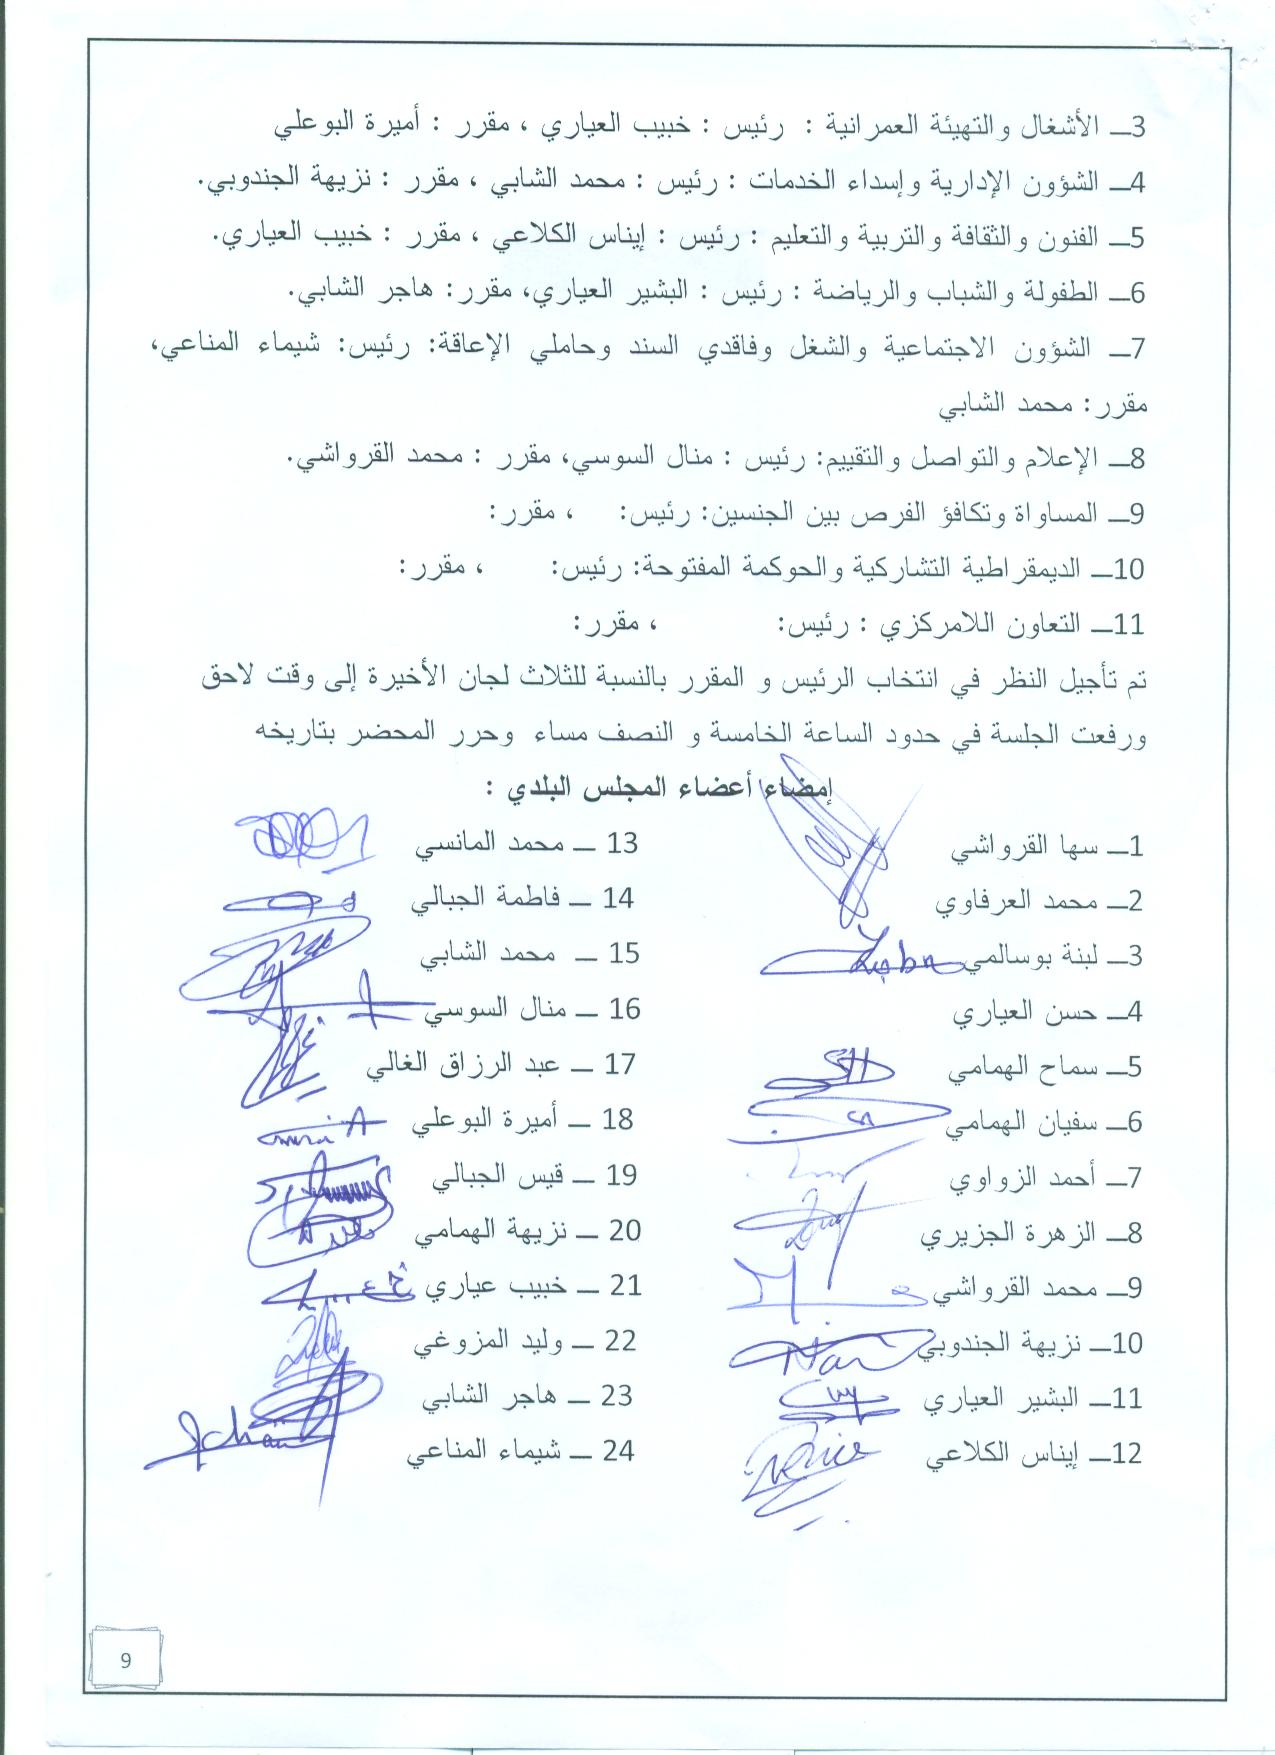 3ــ الأشغال والتهيئة العمرانية : رئيس : خبيب العياري ، مقرر : أميرة البوعلي
4ــ الشؤون الإدارية وإسداء الخدمات : رئيس : محمد الشابي ، مقرر : نزيهة الجندوبي.
5ــ الفنون والثقافة والتربية والتعليم : رئيس : إيناس الكلاعي ، مقرر : خبيب العياري.
6ــ الطفولة والشباب والرياضة : رئيس : البشير العياري، مقرر: هاجر الشابي.
7ــ الشؤون الاجتماعية والشغل وفاقدي السند وحاملي الإعاقة: رئيس: شيماء المناعي،
مقرر: محمد الشابي
8ــ الإعلام والتواصل والتقييم: رئيس : منال السوسي، مقرر : محمد القرواشي.
9ــ المساواة وتكافؤ الفرص بين الجنسين: رئيس: ، مقرر:
10ــ الديمقراطية التشاركية والحوكمة المفتوحة: رئيس: ، مقرر:
11ــ التعاون اللامركزي : رئيس: ، مقرر:
تم تأجيل النظر في انتخاب الرئيس و المقرر بالنسبة للثلاث لجان الأخيرة إلى وقت لاحق
ورفعت الجلسة في حدود الساعة الخامسة و النصف مساء وحرر المحضر بتاريخه
إمضاء أعضاء المجلس البلدي :
1ــ سها القرواشي
2ــ محمد العرفاوي
3ــ لبنة بوسالمي
4ــ حسن العياري
5ــ سماح الهمامي
6ــ سفيان الهمامي
7ــ أحمد الزواوي
8ــ الزهرة الجزيري
9ــ محمد القرواشي
10ــ نزيهة الجندوبي
11ــ البشير العياري
12ــ إيناس الكلاعي
13 ــ محمد المانسي
14 ــ فاطمة الجبالي
15 ــ محمد الشابي
16 ــ منال السوسي
17 ــ عبد الرزاق الغالي
18 ــ أميرة البوعلي
19 ــ قيس الجبالي
20 ــ نزيهة الهمامي
21 ــ خبيب عياري
22 ــ وليد المزوغي
23 ــ هاجر الشابي
24 ــ شيماء المناعي
9